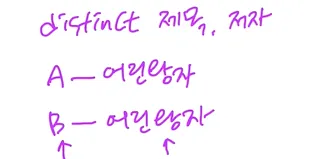 distinct 제목, 저자
A — 어린왕자
B — 어린왕자
↑ ↑